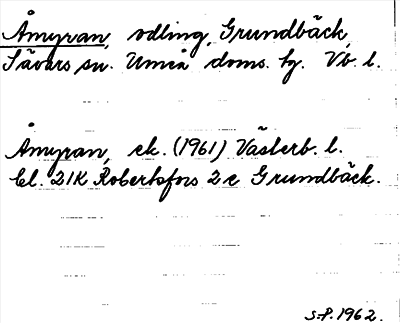 Åmyran, odling, Grundbäck,
Sävars sn. Umeå doms. hg. Vb. l.
Åmyran, ek. (1961) Västerb. l.
Bl. 21K Robertsfors 2c Grundbäck.
S.P. 1962.